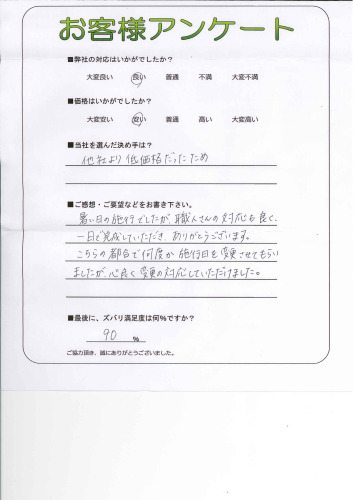 お客様アンケート
■弊社の対応はいかがでしたか？
大変良い 良い 普通 不満 大変不満
■価格はいかがでしたか？
大変安い 安い 普通 高い 大変高い
■当社を選んだ決め手は？
他社より低価格だったため
■ご感想・ご要望などをお書き下さい。
暑い日の施行でしたが、職人さんの対応も良く、
一日で完成していただき、ありがとうございます。
こちらの都合で何度か施行日を変更させてもらい
ましたが、心良く変更の対応していただけました。
■最後に、ズバリ満足度は何%ですか？
90 %
ご協力頂き、誠にありがとうございました。